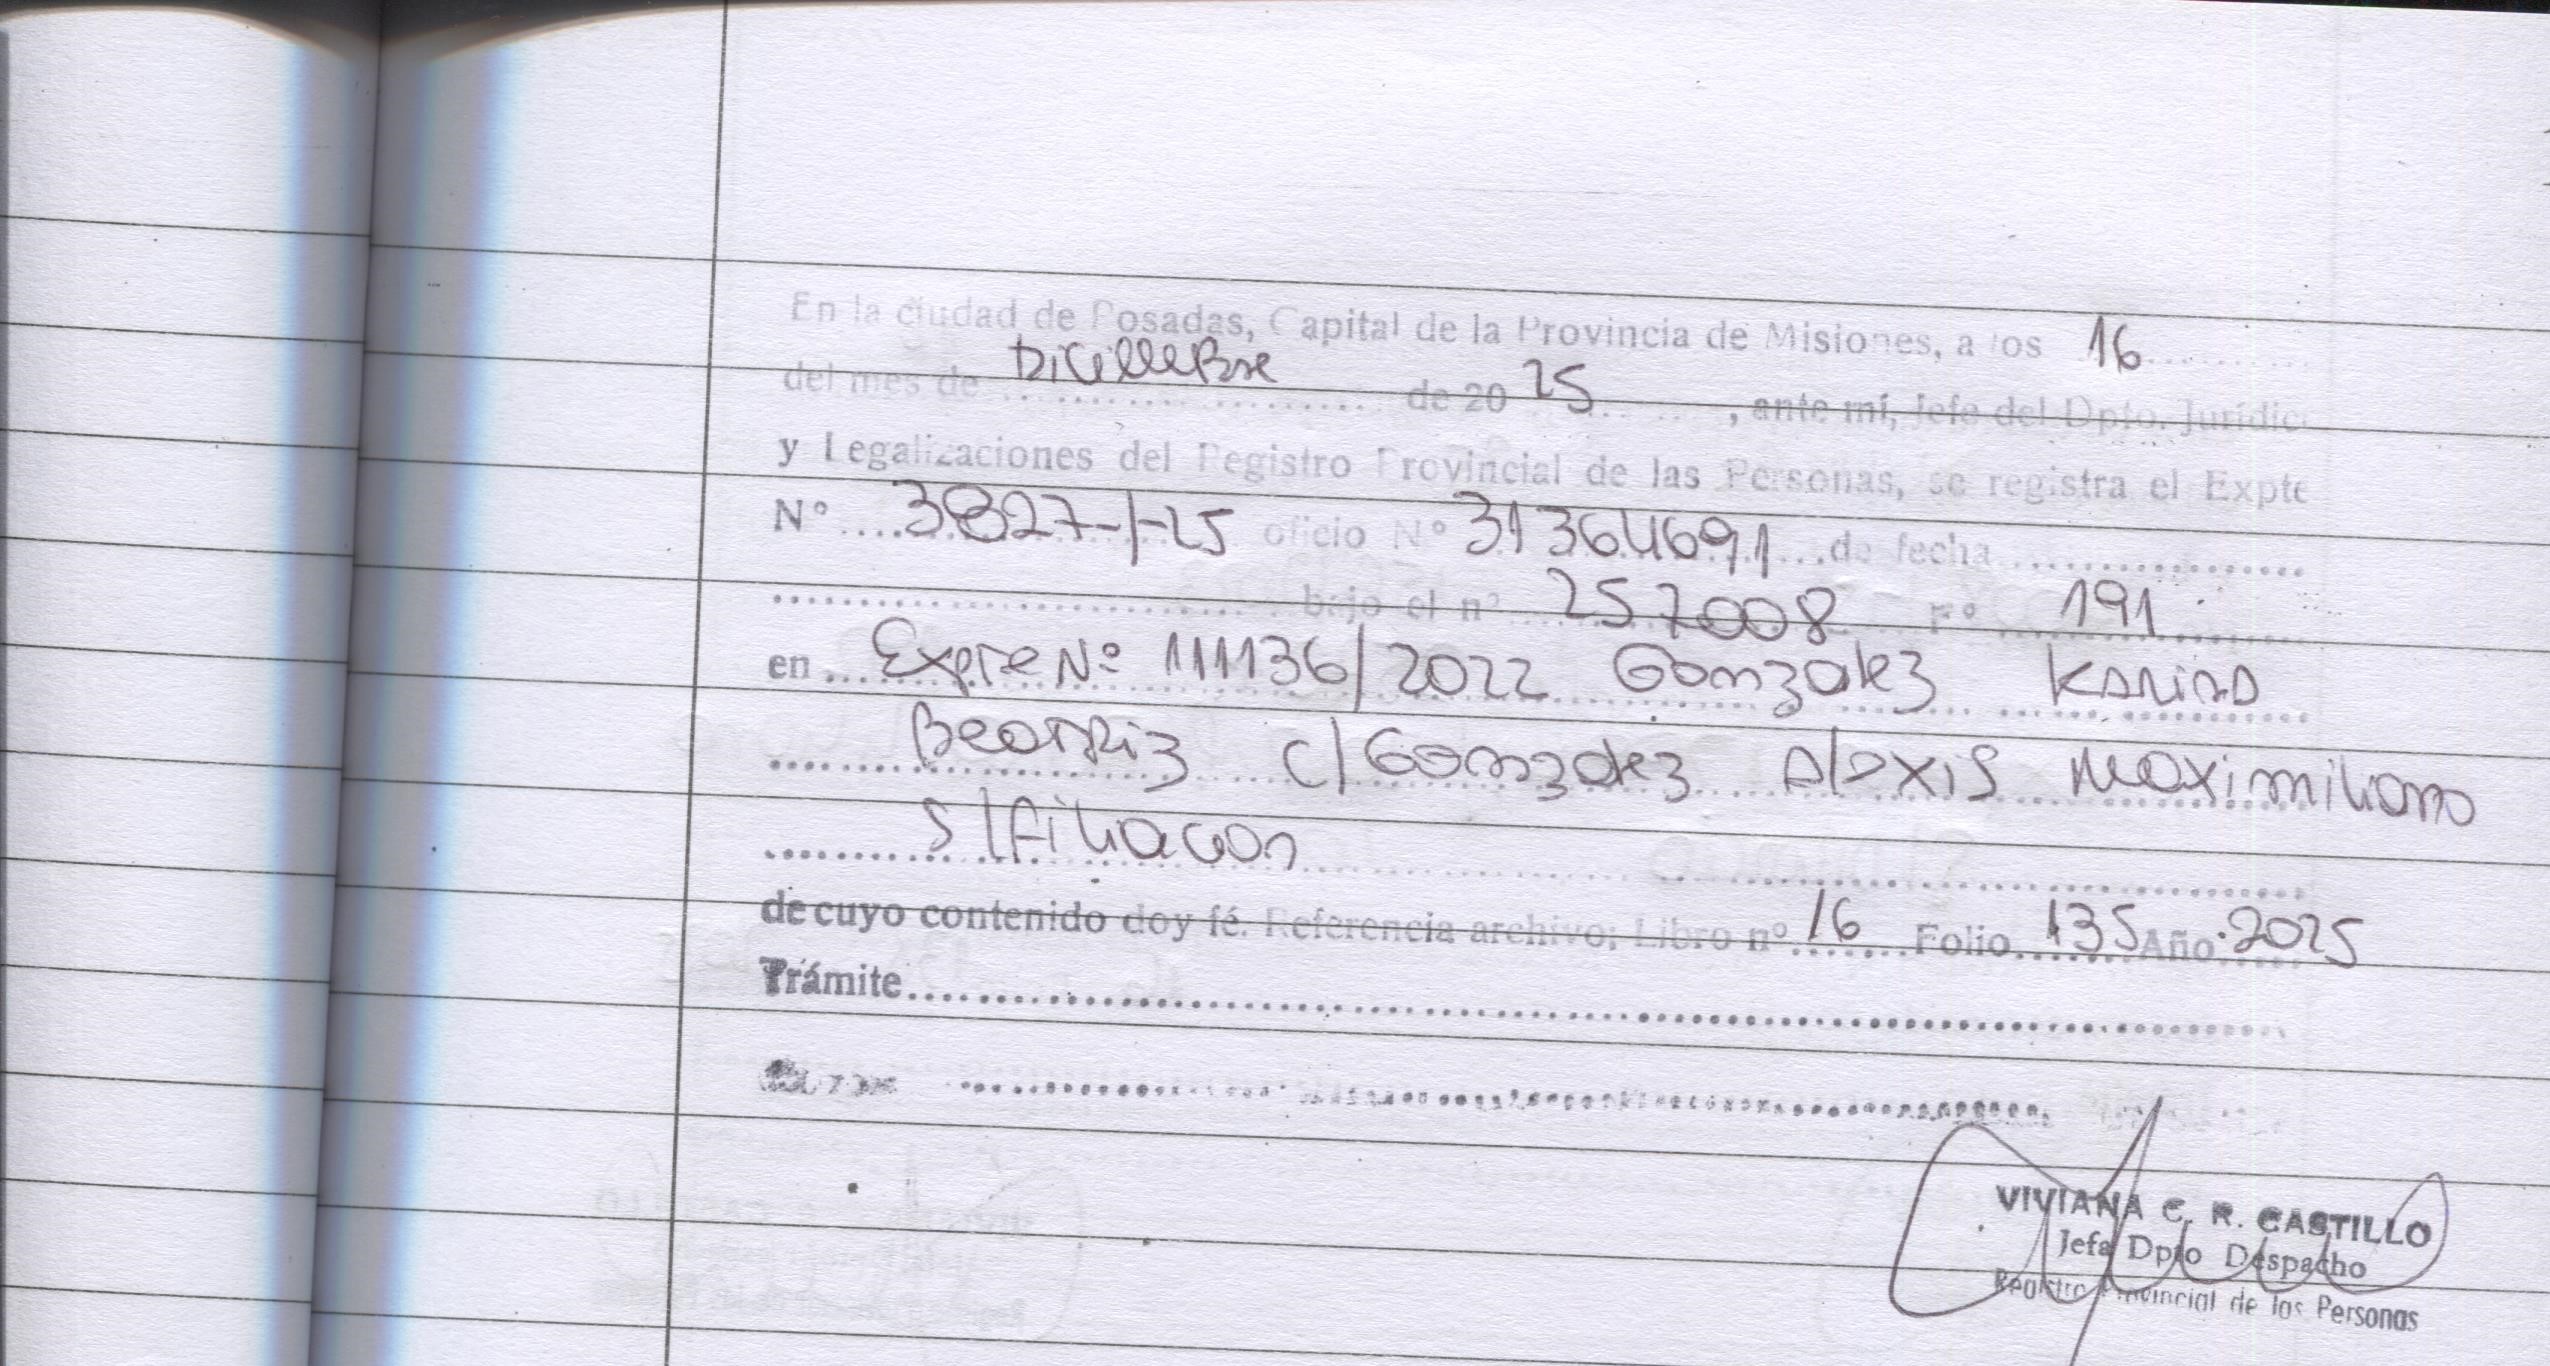 En la ciudad de Posadas, Capital de la Provincia de Misiones, a los 16
del mes de Diciembre de 20 25, ante mí, Jefe del Dpto. Jurídic
y Legalizaciones del Registro Provincial de las Personas, se registra el Expte
Nº 3827-I-25 oficio Nº 31364691 de fecha
bajo el nº 257008 Fº 191
en Expte Nº 111136/2022 Gonzalez Karina
Beatriz c/ Gonzalez Alexis Maximiliano
S/ Filiacion
de cuyo contenido doy fé. Referencia archivo: Libro nº 16 Folio 135 Año 2025
Trámite
VIVIANA C. R. CASTILLO
Jefa Dpto Despacho
Registro Provincial de las Personas